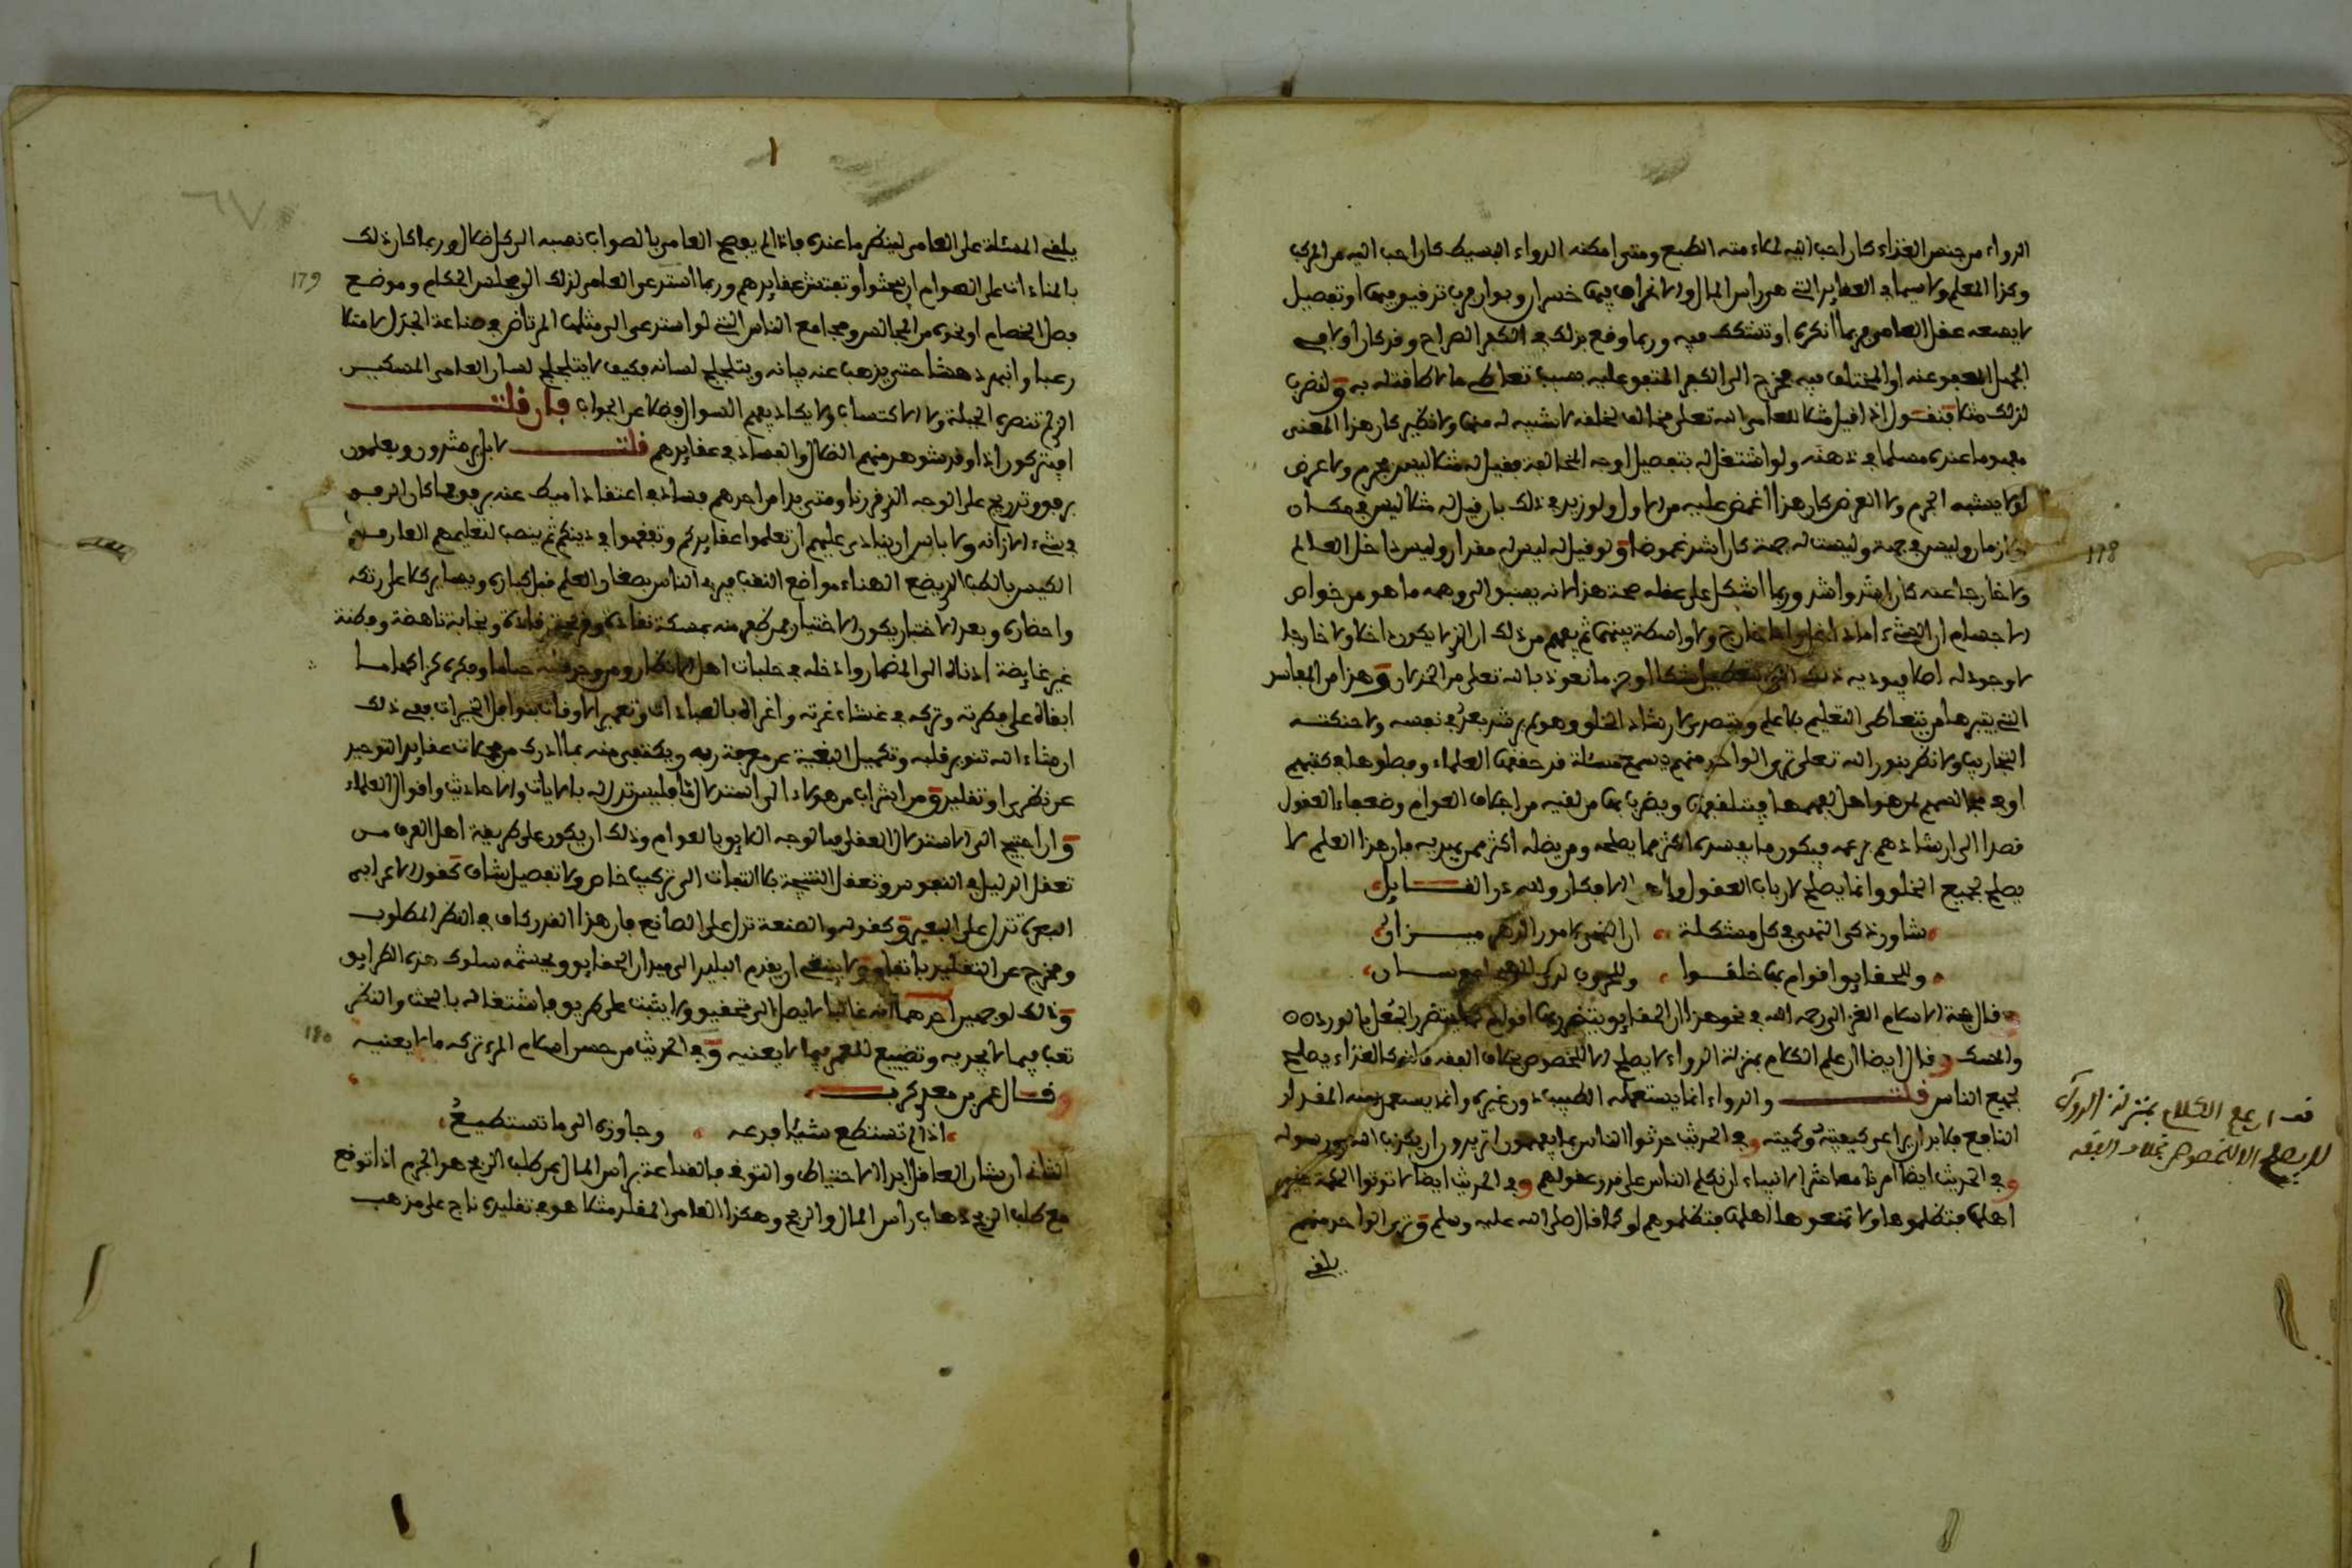 الدواء من جنس الغذاء كان احب اليه لملاءمته الطبع ومتى امكنه الدواء البسيط كان احب اليه من المركب
وكذا المعلم ولا سيما في العقايد التي هي راس المال والاغراض فيها خسران وبوار فرب تدقيق فيها او تفصيل
لا يسعه عقل العامي فربما انكره او تشكك فيه وربما وقع بذلك في الكفر الصراح وقد كان اولا في
الجهل المعفو عنه او المختلف فيه فخرج الى الكفر المتفق عليه بسبب تعاطي ما لا طاقة له به ولنضرب
لذلك مثلا فنقول اذا قيل مثلا للعامي الله تعلى مخالف لخلقه لا شبيه له منها ولا نظير كان هذا المعنى
مفهوما عنده مسلما في ذهنه ولو اشتغل له بتفصيل اوجه المخالفة فقيل له مثلا ليس بجرم ولا عرض
ولا يشبه الجرم ولا العرض كان هذا اغمض عليه من الاول ولو زيد في ذلك بان قيل له مثلا ليس في مكان
ولا زمان وليس في جهة وليست له جهة كان اشد غموضا ولو قيل له ليس له مقدار وليس داخل العالم
ولا خارجا عنه كان اشد واشد وربما اشكل على عقله صحة هذا لانه يسبق الى وهمه ما هو من خواص
الاجسام ان الشيء اما داخل واما خارج ولا واسطة بينهما ثم يفهم من ذلك ان الذي لا يكون داخلا ولا خارجا
لا وجود له اصلا فيوديه ذلك الى التعطيل نعوذ بالله تعلى من الخذلان وهذا من المفاسد
التي يثيرها من يتعاطى التعليم بلا علم ويتصدى لارشاد الخلق وهو لم يرشد بعد في نفسه ولا حنكته
التجاريب ولا نظر بنور الله تعلى ترى الواحد منهم يسمع مسئلة قد حققها العلماء وبطوها في كتبهم
او في مجالسهم لمن هو اهل لفهمها فيتلقفها ويضرب بها من لقيه من اجلاف العوام وضعفاء العقول
قصدا الى ارشادهم بزعمه فيكون ما يفسده اكثر مما يصلحه ومن يضله اكثر ممن يهديه فان هذا العلم لا
يصلح لجميع الخلق وانما يصلح لارباب العقول واهل الافكار ولله در القايل
شاور ذكي النهى في كل مشكلة ان النهى لامور الدهر ميزان
وللحقايق اقوام بها خلقوا وللحروب لدى الهيجاء فرسان
قال حجة الاسلام الغزالي رحمه الله في نحو هذا ان الحقايق يتضرر بها اقوام كما يتضرر الجعل بالورد
والمسك وقال ايضا ان علم الكلام بمنزلة الدواء لا يصلح الا للخصوص بخلاف الفقه فانه كالغذاء يصلح
لجميع الناس قلت والدواء انما يستعمله الطبيب دون غيره وانما يستعمل منه المقدار
النافع فلا بد ان يراعى كيفيته وكميته وفي الحديث حدثوا الناس بما يفهمون اتريدون ان يكذب الله ورسوله
وفي الحديث ايضا امرنا معاشر الانبياء ان نكلم الناس على قدر عقولهم وفي الحديث ايضا لا توتوا الحكمة غير
اهلها فتظلموها ولا تمنعوها اهلها فتظلموهم او كما قال صلى الله عليه وسلم وترى الواحد منهم
يلقي
178
قف ان علم الكلام بمنزلة الدواء
لا يصلح الا للخصوص بخلاف الفقه
٦٧
يلقي المسئلة على العامي لينظر ما عنده فاذا لم يفصح العامي بالصواب نسبه الى كل ضلال وربما كان ذلك
بالمناداة على العوام ان يبحثوا وتفتش عقايدهم وربما استدعى العامي لذلك الى مجلس الحكام وموضع
فصل الخصام او نحوه من المجالس ومجامع الناس التي لو استدعي الى مثلها المرتاض في صناعة الجدل لامتلا
رعبا وانبهر دهشا حتى يذهب عنه بيانه ويتلجلج لسانه فكيف لا يتلجلج لسان العامي المسكين
الذي لم تنصره الجبلة ولا الاكتساب ولا يكاد يفهم السوال فضلا عن الجواب فان قلت
افيتركون اذا وقد شوهد منهم الضلال والفساد في عقايدهم قلت لا بل يرشدون ويعلمون
برفق وتدريج على الوجه الذي قررنا ومتى بدا من احدهم فساد في اعتقاد اميط عنه برفق فما كان الرفق
في شيء الا زانه ولا باس ان ينادى عليهم ان تعلموا عقايدكم وتفقهوا في دينكم ثم ينصب لتعليمهم العارف
الكيس بالطب الذي يضع الهناء مواضع النقب فيربي الناس بصغار العلم قبل كباره ويساير كلا على رتكه
واحضاره وبعد الاختبار يكون الاختيار فمن ظفر منه بمسكة نفاذة وقريحة وقادة ونجابة ناهضة وفطنة
غير غايضة ادناه الى المضمار وادخله في حلبات اهل الافكار ومن وجد فهمه كهاما وفكره
ابقاه على فكرته وتركه في غشاء غرته واغراه بالعبادات وتعمير الاوقات بنوافل الخيرات ففي ذلك
ان شاء الله تنوير قلبه وتكميل البغية عن معرفة ربه ويكتفي منه بما ادرك من جملات عقايد التوحيد
عن نظر او تقليد ومن اشراب من هولاء الى استدلال ما فليستدل له بالايات والاحاديث واقوال العلماء
وان احتيج الى الاستدلال العقلي فبالوجه اللايق بالعوام وذلك ان يكون على طريقة اهل العرف من
تعقل الدليل في النفوس وتعقل النتيجة بلا التفات الى تركيب خاص ولا تفصيل شاف كقول الاعرابي
البعرة تدل على البعير وكقوله والصنعة تدل على الصانع فان هذا القدر كاف في النظر المطلوب
ومخرج عن التقليد باتفاق ولا ينبغي ان يقدم البليد الى ميدان الحقايق ويجشمه سلوك هذه الطرايق
وذلك لوجهين احدهما انه غالبا لا يصل الى تحقيق ولا يثبت على طريق فاشتغاله بالبحث والنظر
تعب فيما لا يجديه وتضييع للعمر فيما لا يعنيه وفي الحديث من حسن اسلام المرء تركه ما لا يعنيه
وقال عمر بن معدي كرب
اذا لم تستطع شيئا فدعه وجاوزه الى ما تستطيع
الثاني ان شان العاقل ابدا الاحتياط والتوقي فالقناعة براس المال عن طلب الربح هو الحزم اذا توقع
مع طلب الربح ذهاب راس المال والربح وهكذا العامي المقلد مثلا هو في تقليده ناج على مذهب
179
180